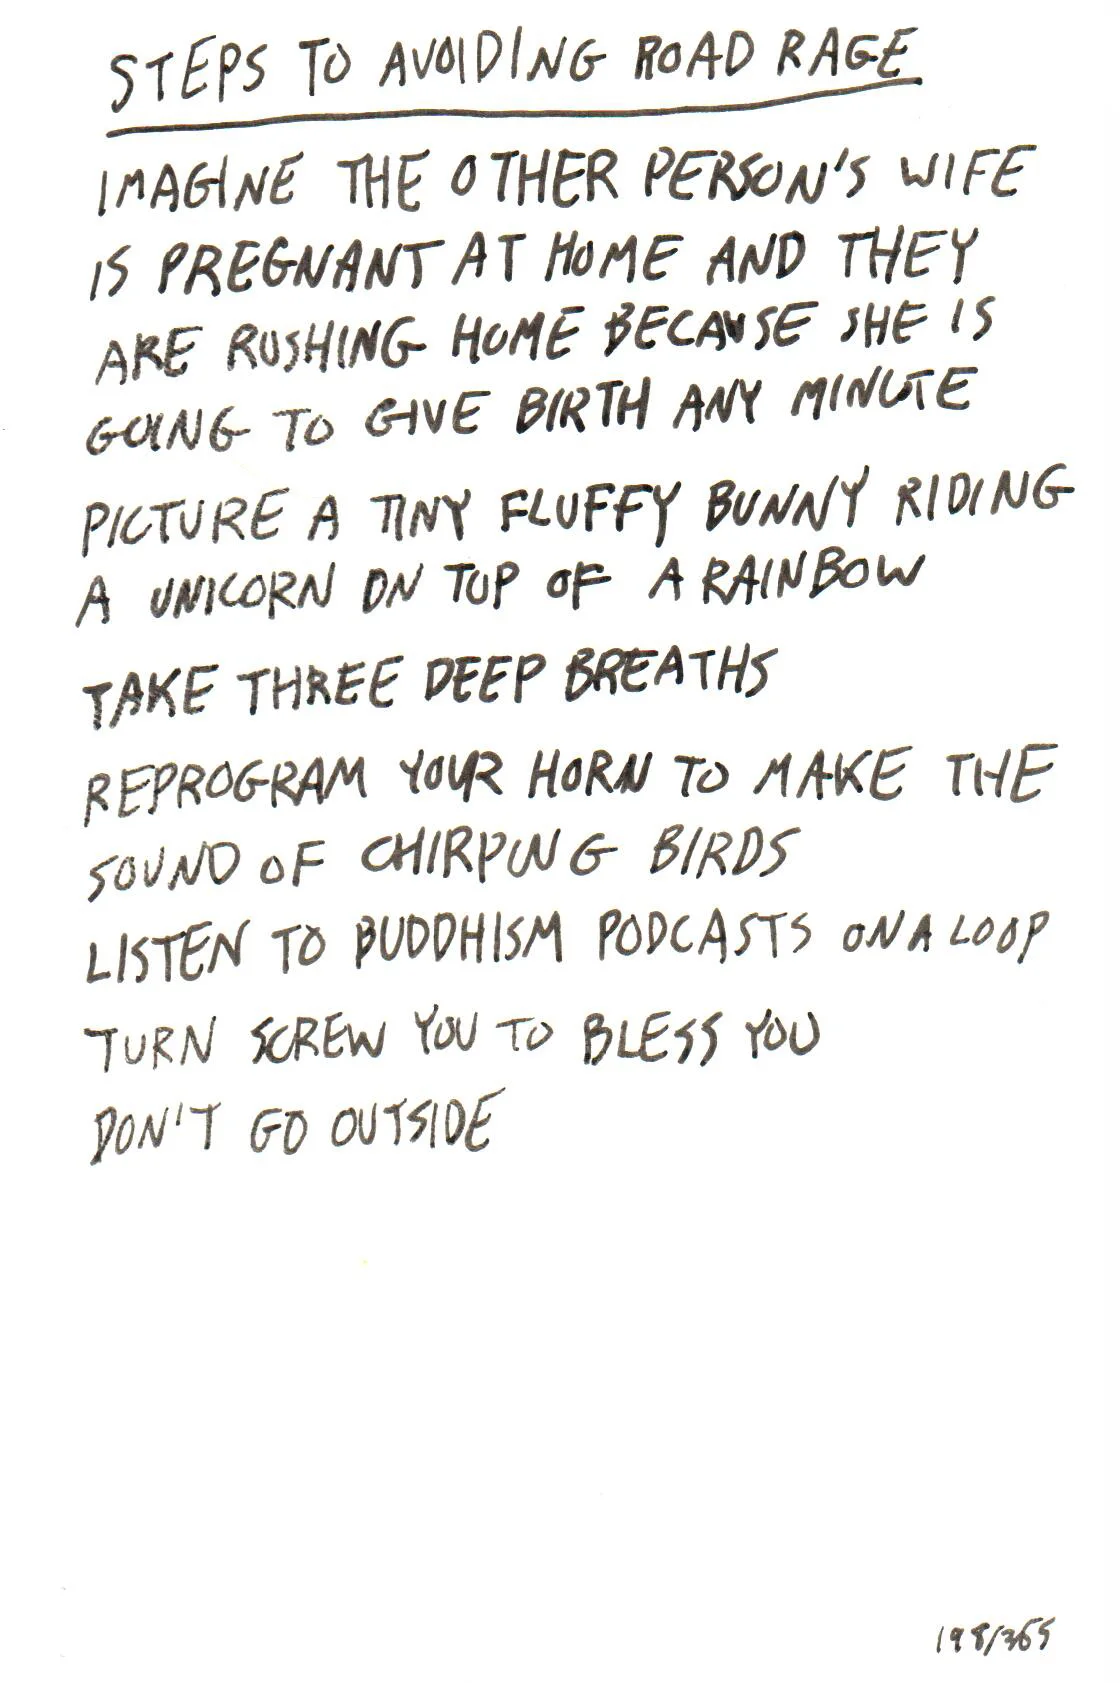 STEPS TO AVOIDING ROAD RAGE
IMAGINE THE OTHER PERSON'S WIFE
IS PREGNANT AT HOME AND THEY
ARE RUSHING HOME BECAUSE SHE IS
GOING TO GIVE BIRTH ANY MINUTE
PICTURE A TINY FLUFFY BUNNY RIDING
A UNICORN ON TOP OF A RAINBOW
TAKE THREE DEEP BREATHS
REPROGRAM YOUR HORN TO MAKE THE
SOUND OF CHIRPING BIRDS
LISTEN TO BUDDHISM PODCASTS ON A LOOP
TURN SCREW YOU TO BLESS YOU
DON'T GO OUTSIDE
198/365